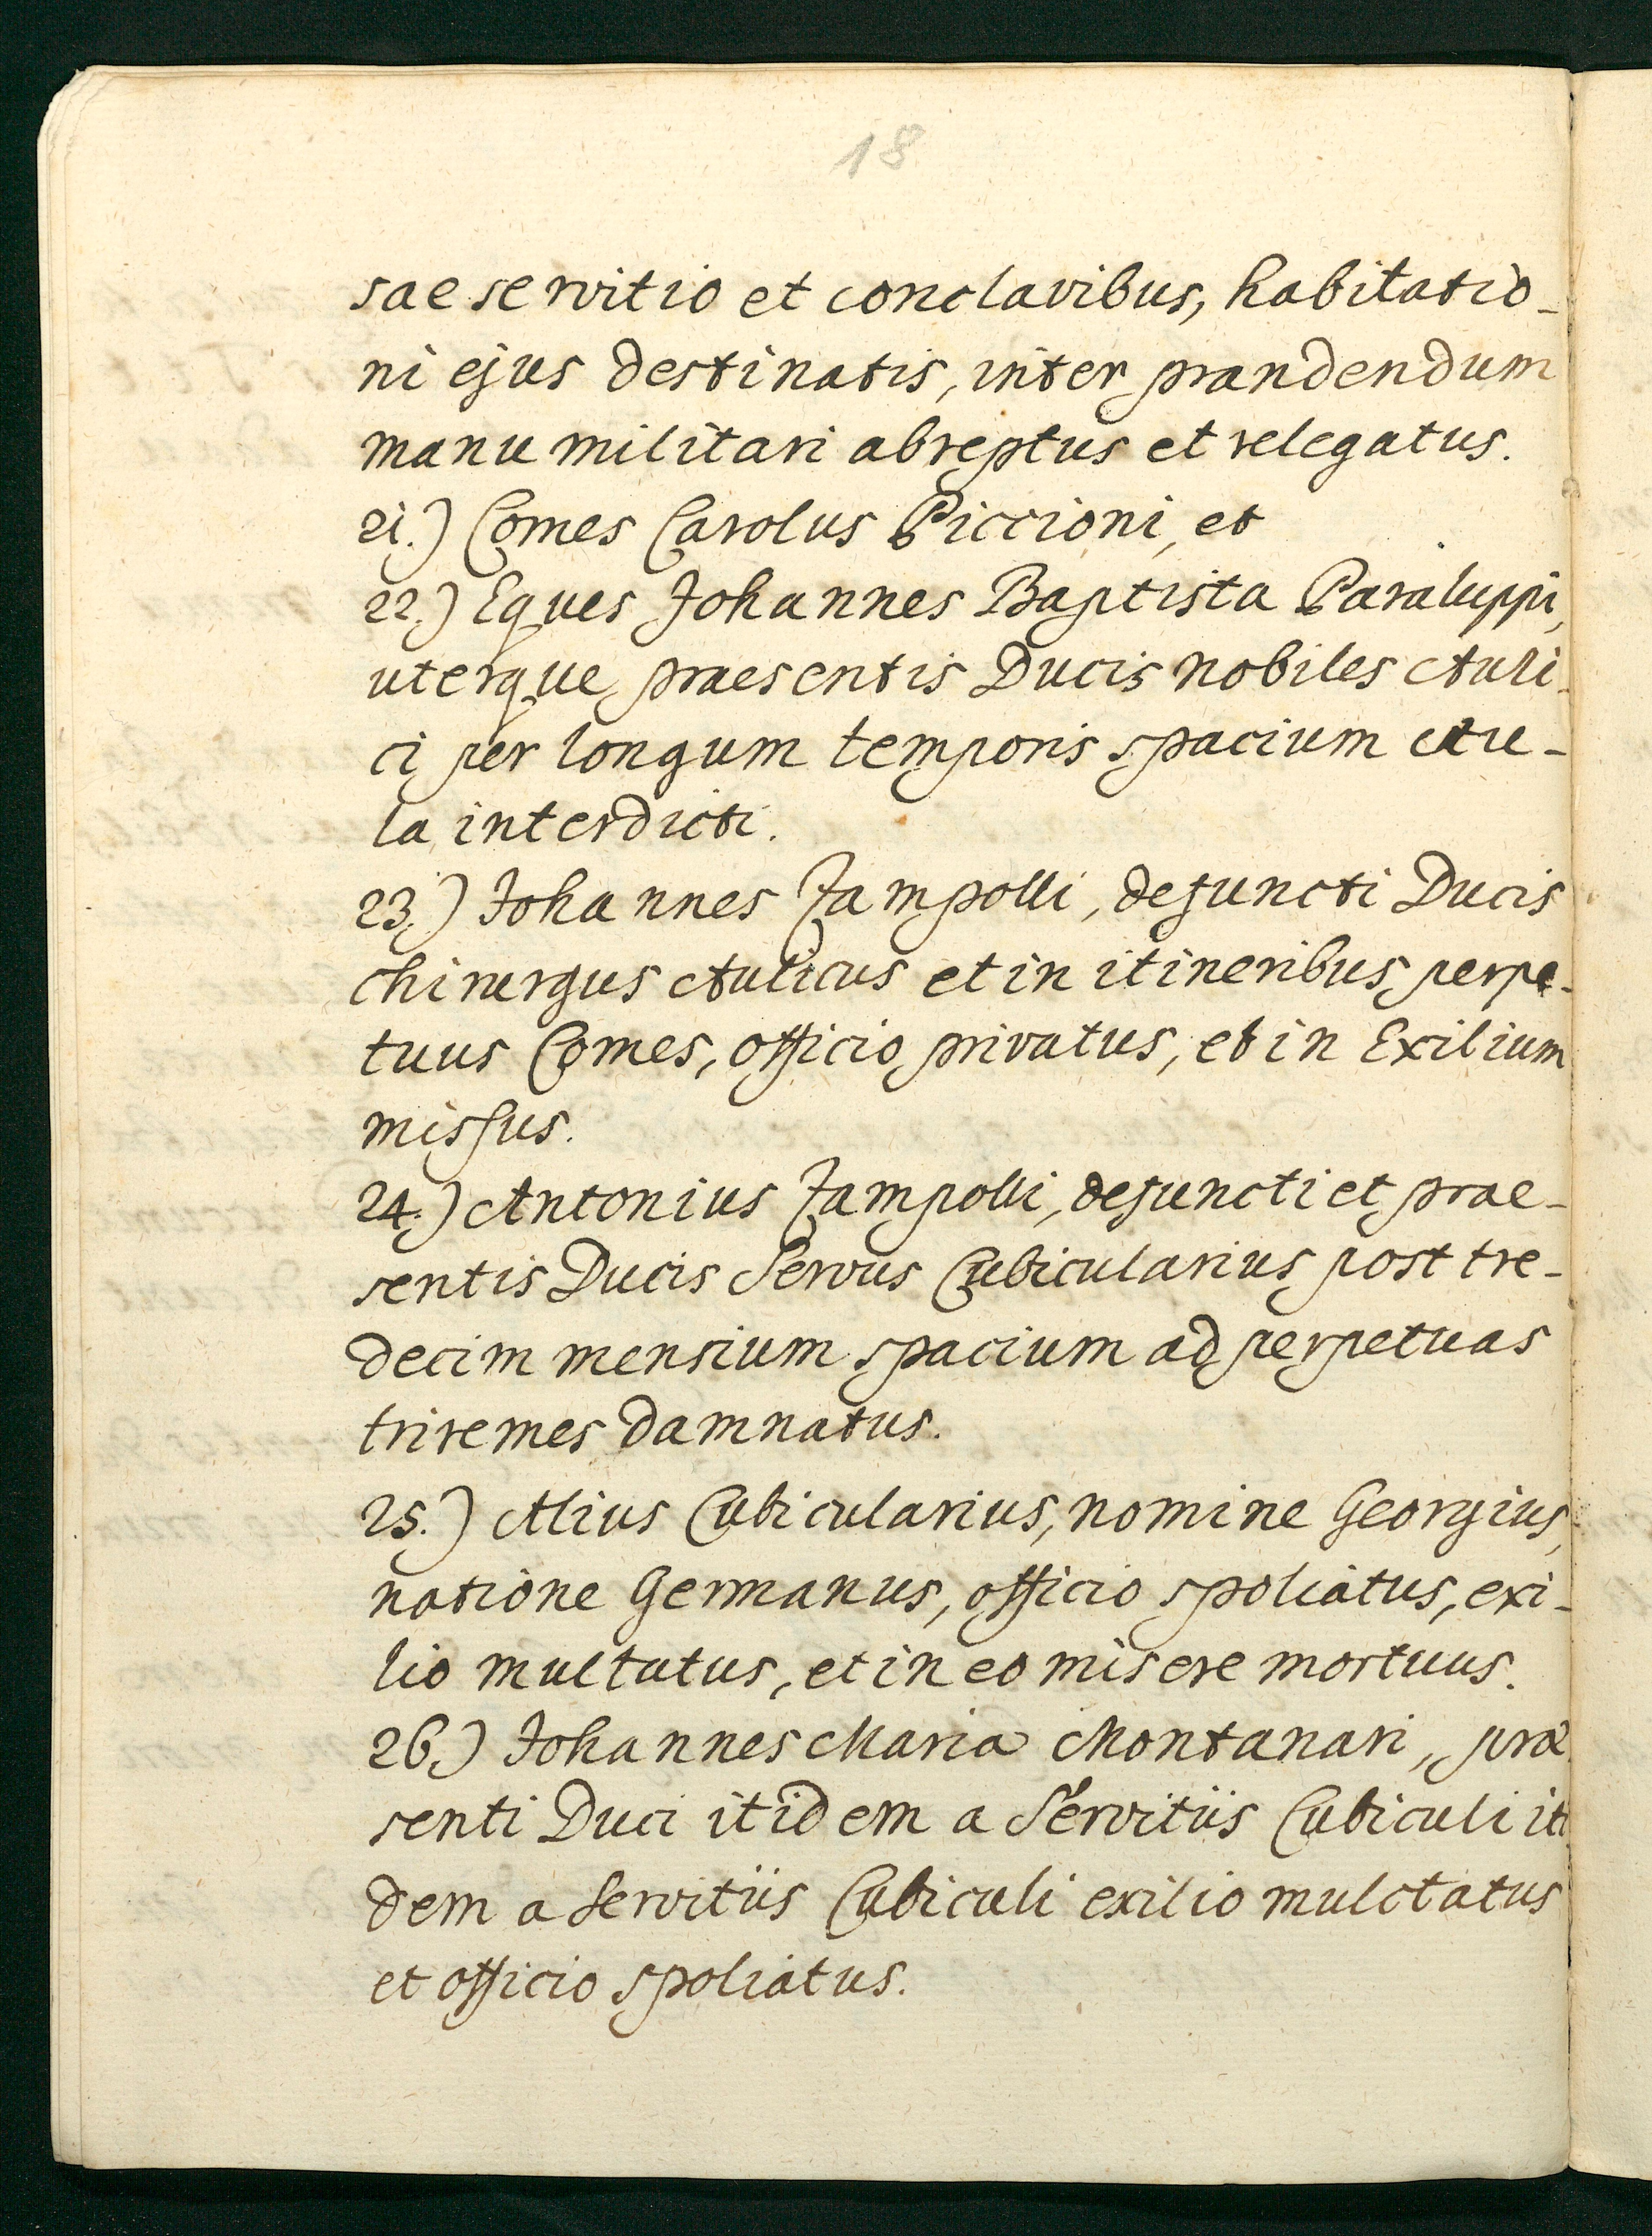 18
sae servitio et conclavibus, habitatio-
ni ejus destinatis, inter prandendum
manu militari abreptus et relegatus.
21.) Comes Carolus Piccioni, et
22.) Eques Johannes Baptista Paraluppi,
uterque praesentis Ducis nobiles Auli-
ci per longum temporis spacium Au-
la interdicti.
23.) Johannes Zampolli, defuncti Ducis
chirurgus Aulicus et in itineribus perpe-
tuus Comes, officio privatus, et in Exilium
missus.
24.) Antonius Zampolli, defuncti et prae-
sentis Ducis Servus Cubicularius post tre-
decim mensium spacium ad perpetuas
triremes damnatus.
25.) Alius Cubicularius, nomine Georgius,
natione Germanus, officio spoliatus, exi-
lio multatus, et in eo misere mortuus.
26.) Johannes Maria Montanari, prae
senti Duci itidem a Servitiis Cubiculi iti
dem a Servitiis Cubiculi exilio mulctatus
et officio spoliatus.